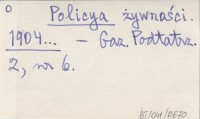 0
Policya żywności.
1904... — Gaz. Podtatrz.
2, nr 6.
E/04/0670